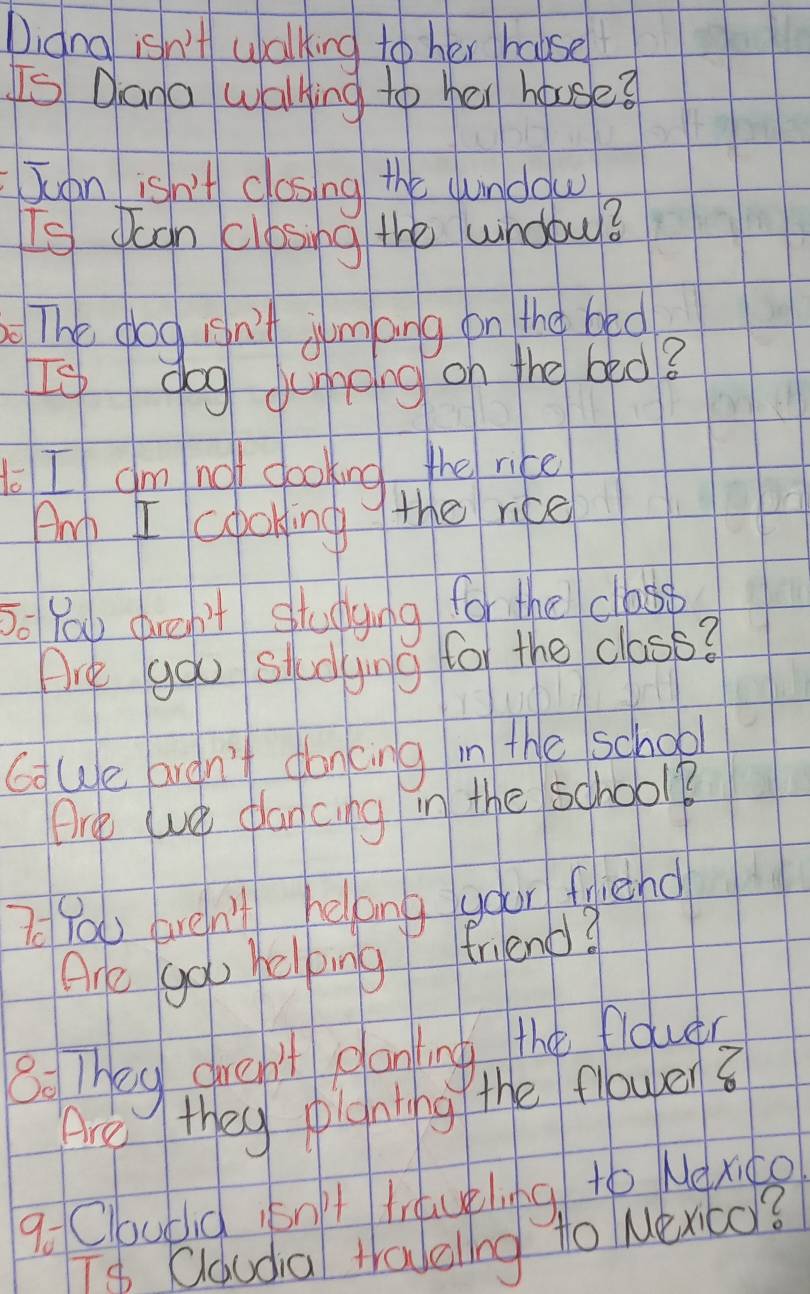 Diana isn't walking to her house
Is Diana walking to her house?
Juan isn't closing the window
Is Juan closing the window?
The dog isn't jumping on the bed
Is dog jumping on the bed?
I am not cooking the rice
Am I cooking the rice
5: You aren't studying for the class
Are you studying for the class?
6: We aren't dancing in the school
Are we dancing in the school?
7: You aren't helping your friend
Are you helping friend?
8: They aren't planting the flower
Are they planting the flower?
9: Claudia isn't traveling to Mexico.
Is Claudia traveling to Mexico?